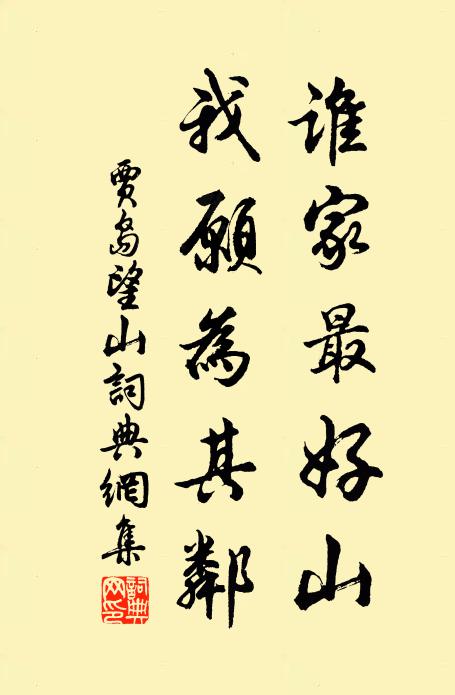 誰家最好山
我願為其鄰
賈島望山詞典網集
詞典網印